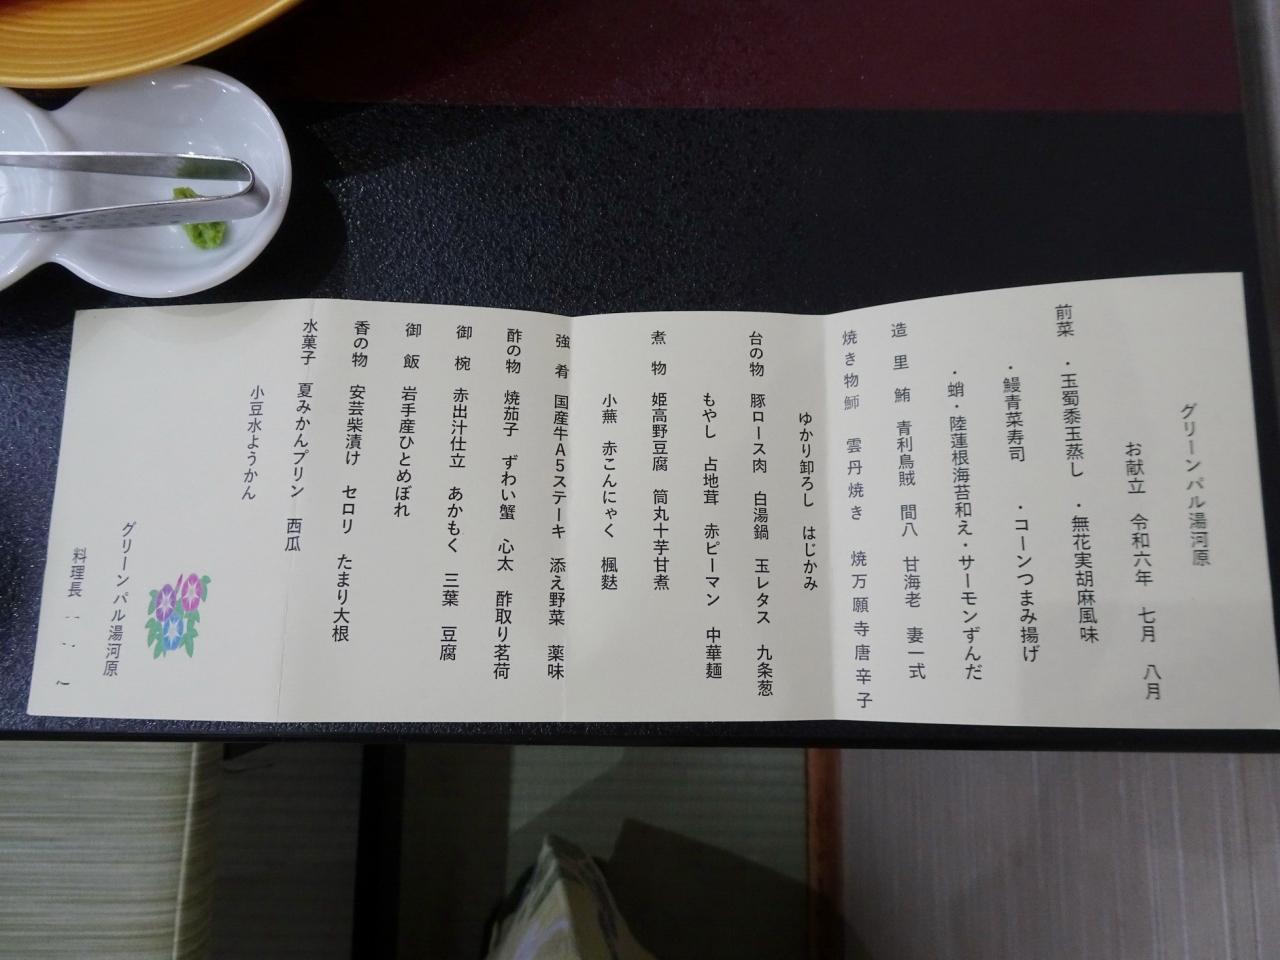 グリーンパル湯河原
お献立　令和六年　七月　八月
前菜　・玉蜀黍玉蒸し　・無花実胡麻風味
・鰻青菜寿司　・コーンつまみ揚げ
・蛸・陸蓮根海苔和え・サーモンずんだ
造里　鮪　青利烏賊　間八　甘海老　妻一式
焼き物　鰤　雲丹焼き　焼万願寺唐辛子
ゆかり卸ろし　はじかみ
台の物　豚ロース肉　白湯鍋　玉レタス　九条葱
もやし　占地茸　赤ピーマン　中華麺
煮物　姫高野豆腐　筒丸十芋甘煮
小蕪　赤こんにゃく　楓麩
強肴　国産牛A5ステーキ　添え野菜　薬味
酢の物　焼茄子　ずわい蟹　心太　酢取り茗荷
御椀　赤出汁仕立　あかもく　三葉　豆腐
御飯　岩手産ひとめぼれ
香の物　安芸柴漬け　セロリ　たまり大根
水菓子　夏みかんプリン　西瓜
小豆水ようかん
グリーンパル湯河原
料理長